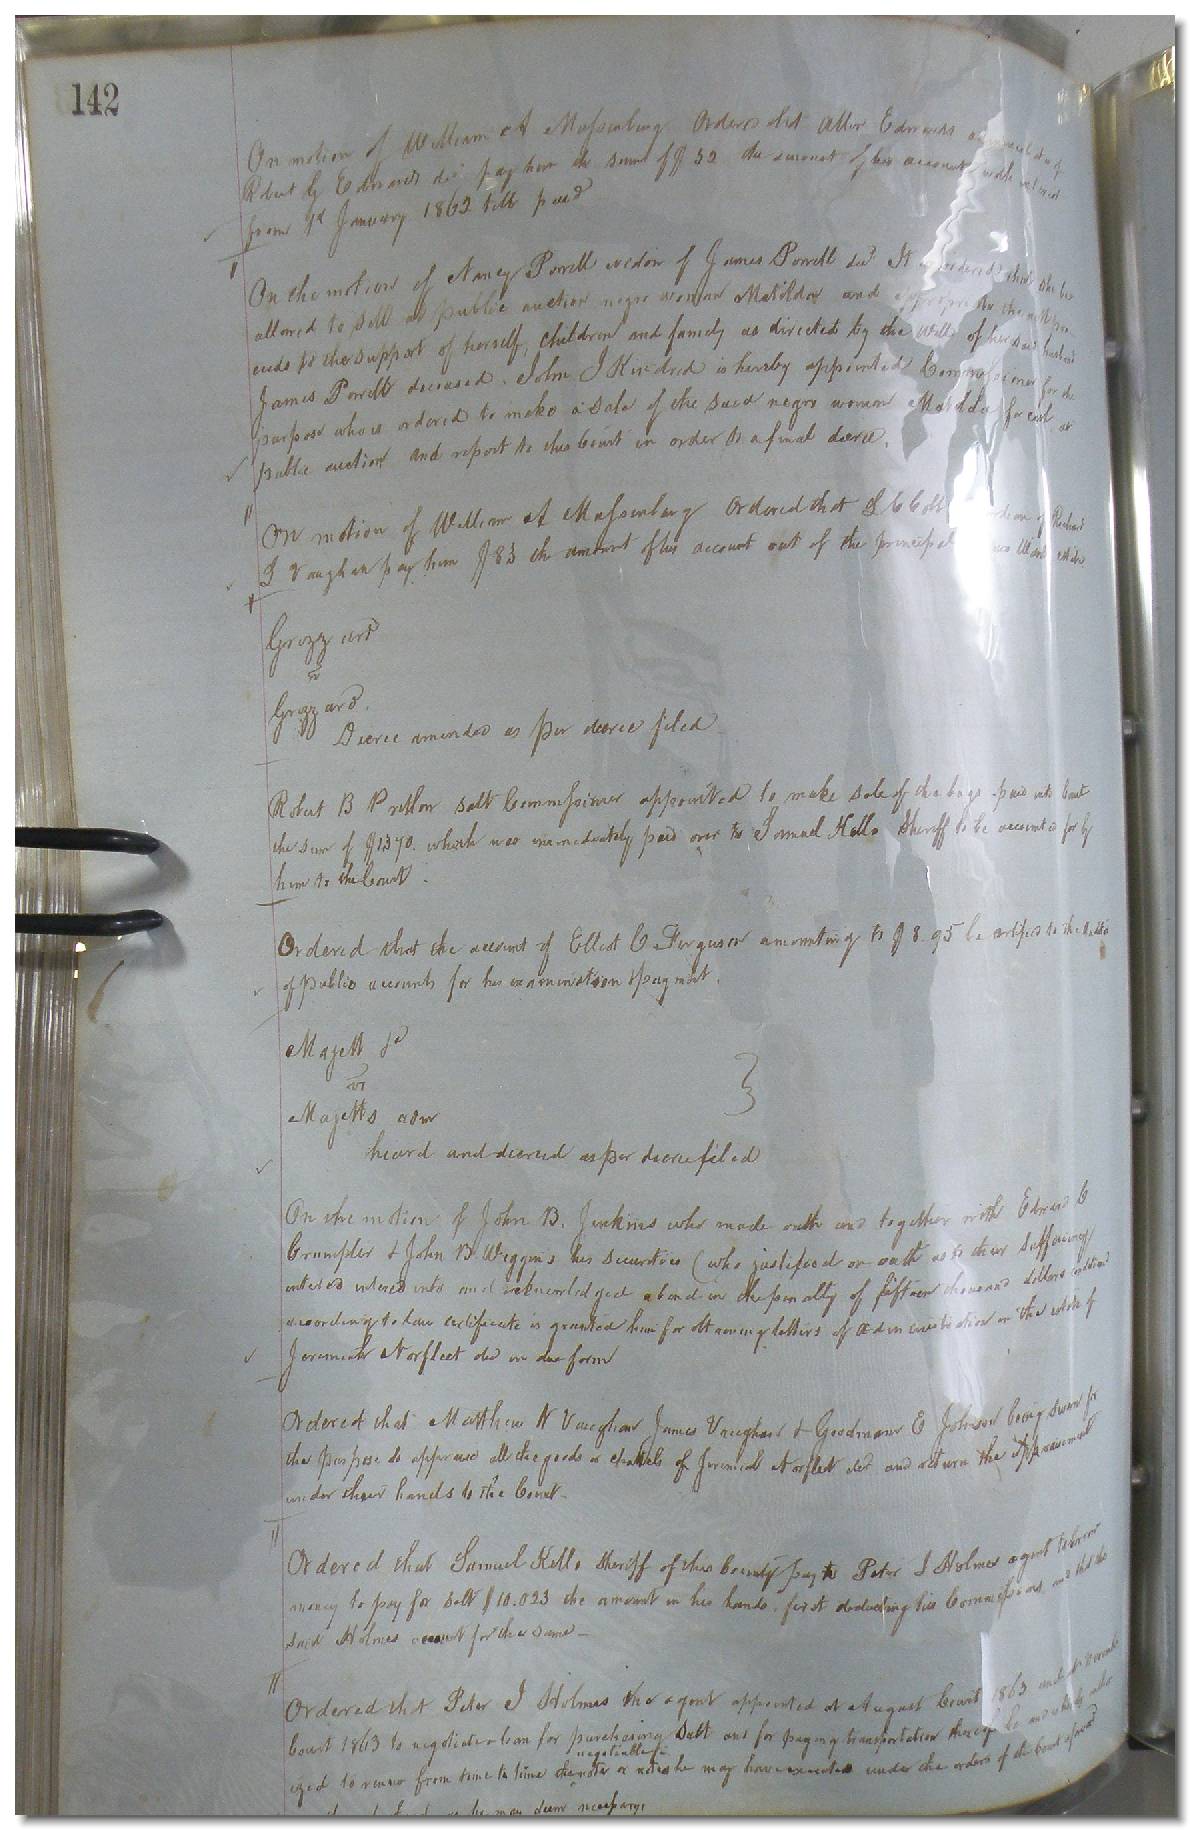 142
On motion of William A Massenburg Ordered that Edwards
Robert G Edwards decd pay him the sum of $52 the amount of his account with interest
from 1st January 1862 till paid
On the motion of Nancy Powell widow of James Powell decd It is ordered that she be
allowed to sell at public auction negro woman Matilda and appropriate the net pro
ceeds to the support of herself, children and family as directed by the will of her said husband
James Powell deceased. John J Kindred is hereby appointed Commissioner for the
purpose who is ordered to make a sale of the said negro woman Matilda for cash at
public auction and report to this Court in order to a final decree.
On motion of William A Massenburg Ordered that of Richard
S Vaughan pay him $83 the amount of his account out of the principal
Grizzard
vs
Grizzard.
Decree amended as per decree filed
Robert B Salt Commissioner appointed to make sale of the bags paid into Court
the sum of $1370. which was immediately paid over to Samuel Kello Sheriff to be accounted for by
him to the Court.
Ordered that the account of Elliot C Ferguson amounting to $8.95 be certified to the
of public accounts for his examination & payment.
Majett &c
vs
Majetts adm
heard and decreed as per decree filed
On the motion of John B. Jenkins who made oath and together with Edward C
Crumpler & John B Wiggins his securities (who justified on oath as to their sufficiency)
entered into and acknowledged a bond in the penalty of fifteen thousand dollars conditioned
according to law certificate is granted him for obtaining letters of administration on the estate of
Jeremiah Norfleet decd in due form
Ordered that Matthew N Vaughan James Vaughan & Goodman E Johnson being sworn for
the purpose do appraise all the goods & chattels of Jeremiah Norfleet decd and return the appraisement
under their hands to the Court.
Ordered that Samuel Kello Sheriff of this County pay to Peter J Holmes agent to borrow
money to pay for salt $10.023 the amount in his hands, first deducting his Commissions, and that the
said Holmes account for the same
Ordered that Peter J Holmes the agent appointed at August Court 1863 and at November
Court 1863 to negotiate a loan for purchasing Salt and for paying transportation thereof be and is hereby author
negotiable
ized to renew from time to time the note or notes he may have executed under the orders of the Court aforesaid
he may deem necessary